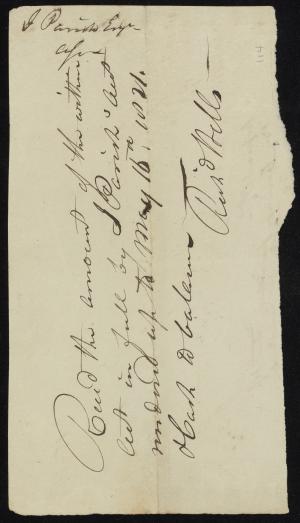 J Parish Esqr
Recd the amount of the within
act in full by J Parish's act
rendered up to May 16th 1821.
& Cash to balance
Richd Wells
114